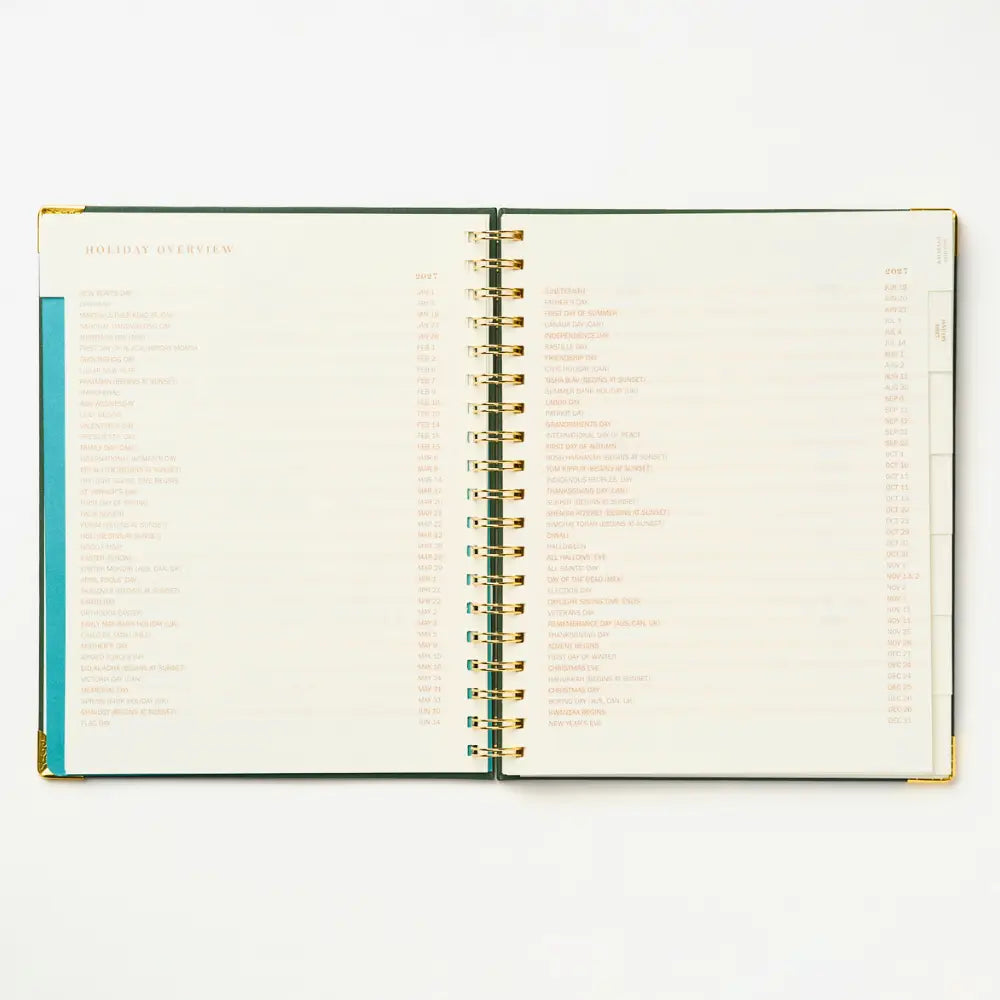 HOLIDAY OVERVIEW
2027
NEW YEAR'S DAY JAN 1
MARTIN LUTHER KING JR. DAY JAN 18
FEB 1
GROUNDHOG DAY FEB 2
LUNAR NEW YEAR FEB 6
RAMADAN (BEGINS AT SUNSET) FEB 7
ASH WEDNESDAY FEB 10
LENT BEGINS FEB 10
VALENTINE'S DAY FEB 14
PRESIDENTS' DAY FEB 15
FAMILY DAY (CAN) FEB 15
INTERNATIONAL WOMEN'S DAY MAR 8
ST. PATRICK'S DAY MAR 17
FIRST DAY OF SPRING
PALM SUNDAY MAR 21
PURIM (BEGINS AT SUNSET) MAR 22
GOOD FRIDAY
EASTER SUNDAY MAR 28
EASTER MONDAY (AUS, CAN, UK) MAR 29
APRIL FOOLS' DAY APR 1
PASSOVER (BEGINS AT SUNSET) APR 21
EARTH DAY APR 22
ORTHODOX EASTER MAY 2
EARLY MAY BANK HOLIDAY (UK) MAY 3
CINCO DE MAYO MAY 5
MOTHER'S DAY MAY 9
VICTORIA DAY (CAN) MAY 24
MEMORIAL DAY MAY 31
SPRING BANK HOLIDAY (UK) MAY 31
SHAVUOT (BEGINS AT SUNSET) JUN 10
FLAG DAY JUN 14
2027
JUNETEENTH JUN 19
FATHER'S DAY JUN 20
FIRST DAY OF SUMMER JUN 21
CANADA DAY (CAN) JUL 1
INDEPENDENCE DAY JUL 4
BASTILLE DAY JUL 14
FRIENDSHIP DAY AUG 1
CIVIC HOLIDAY (CAN) AUG 2
TISHA B'AV (BEGINS AT SUNSET) AUG 11
SUMMER BANK HOLIDAY (UK) AUG 30
LABOR DAY SEP 6
PATRIOT DAY SEP 11
GRANDPARENTS DAY SEP 12
INTERNATIONAL DAY OF PEACE SEP 21
FIRST DAY OF AUTUMN SEP 22
ROSH HASHANAH (BEGINS AT SUNSET) OCT 1
YOM KIPPUR (BEGINS AT SUNSET) OCT 10
INDIGENOUS PEOPLES' DAY OCT 11
THANKSGIVING DAY (CAN) OCT 11
SUKKOT (BEGINS AT SUNSET)
SHEMINI ATZERET (BEGINS AT SUNSET) OCT 22
SIMCHAT TORAH (BEGINS AT SUNSET) OCT 23
DIWALI OCT 29
HALLOWEEN OCT 31
ALL HALLOWS' EVE OCT 31
ALL SAINTS' DAY NOV 1
DAY OF THE DEAD (MEX) NOV 1 & 2
ELECTION DAY NOV 2
DAYLIGHT SAVING TIME ENDS NOV 7
VETERANS DAY NOV 11
REMEMBRANCE DAY (AUS, CAN, UK) NOV 11
THANKSGIVING DAY NOV 25
ADVENT BEGINS NOV 28
FIRST DAY OF WINTER DEC 21
CHRISTMAS EVE DEC 24
HANUKKAH (BEGINS AT SUNSET) DEC 24
CHRISTMAS DAY DEC 25
BOXING DAY (AUS, CAN, UK) DEC 26
KWANZAA BEGINS DEC 26
NEW YEAR'S EVE DEC 31